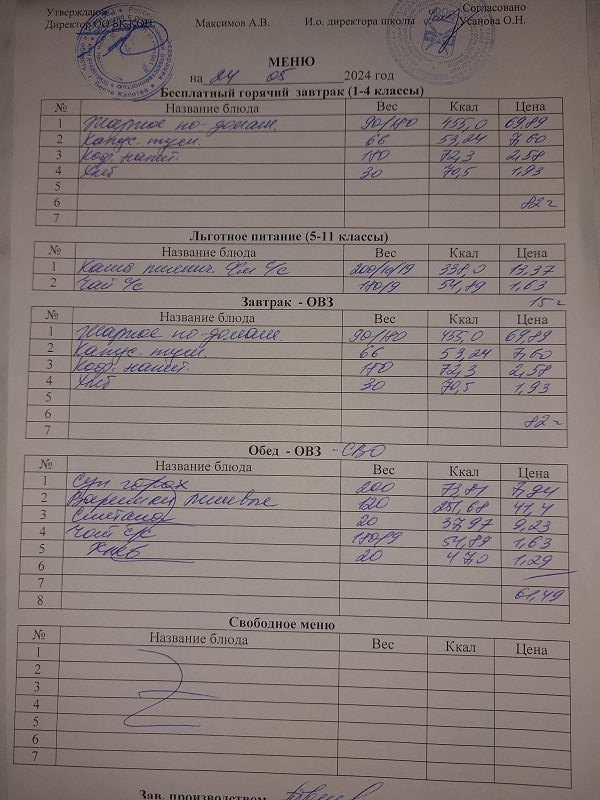 Утверждаю Согласовано
Директор ОО БККОН Максимов А.В. И.о. директора школы Усанова О.Н.
МЕНЮ
на 24 05 2024 год
Бесплатный горячий завтрак (1-4 классы)
№ Название блюда Вес Ккал Цена
1 Жаркое по-домаш. 90/180 455,0 69,89
2 Капус. туш. 66 53,24 7,60
3 Коф. напит. 180 72,3 2,58
4 Хлеб 30 70,5 1,93
5
6 82 г
7
Льготное питание (5-11 классы)
№ Название блюда Вес Ккал Цена
1 Каша пшенич. с/с 200/10/19 338,0 13,37
2 Чай с/с 180/9 54,89 1,63
15 г
Завтрак - ОВЗ
№ Название блюда Вес Ккал Цена
1 Жаркое по-домаш. 90/180 455,0 69,89
2 Капус. туш. 66 53,24 7,60
3 Коф. напит. 180 72,3 2,58
4 Хлеб 30 70,5 1,93
5
6 82 г
7
Обед - ОВЗ - СВО
№ Название блюда Вес Ккал Цена
1 Суп горох 200 73,81 7,94
2 Вареники ленивые 120 251,68 41,4
3 Сметана 20 37,97 9,23
4 Чай с/с 180/9 54,89 1,63
5 Хлеб 20 47,0 1,29
6
7 61,49
8
Свободное меню
№ Название блюда Вес Ккал Цена
1
2
3
4
5
6
7
Зав. производством